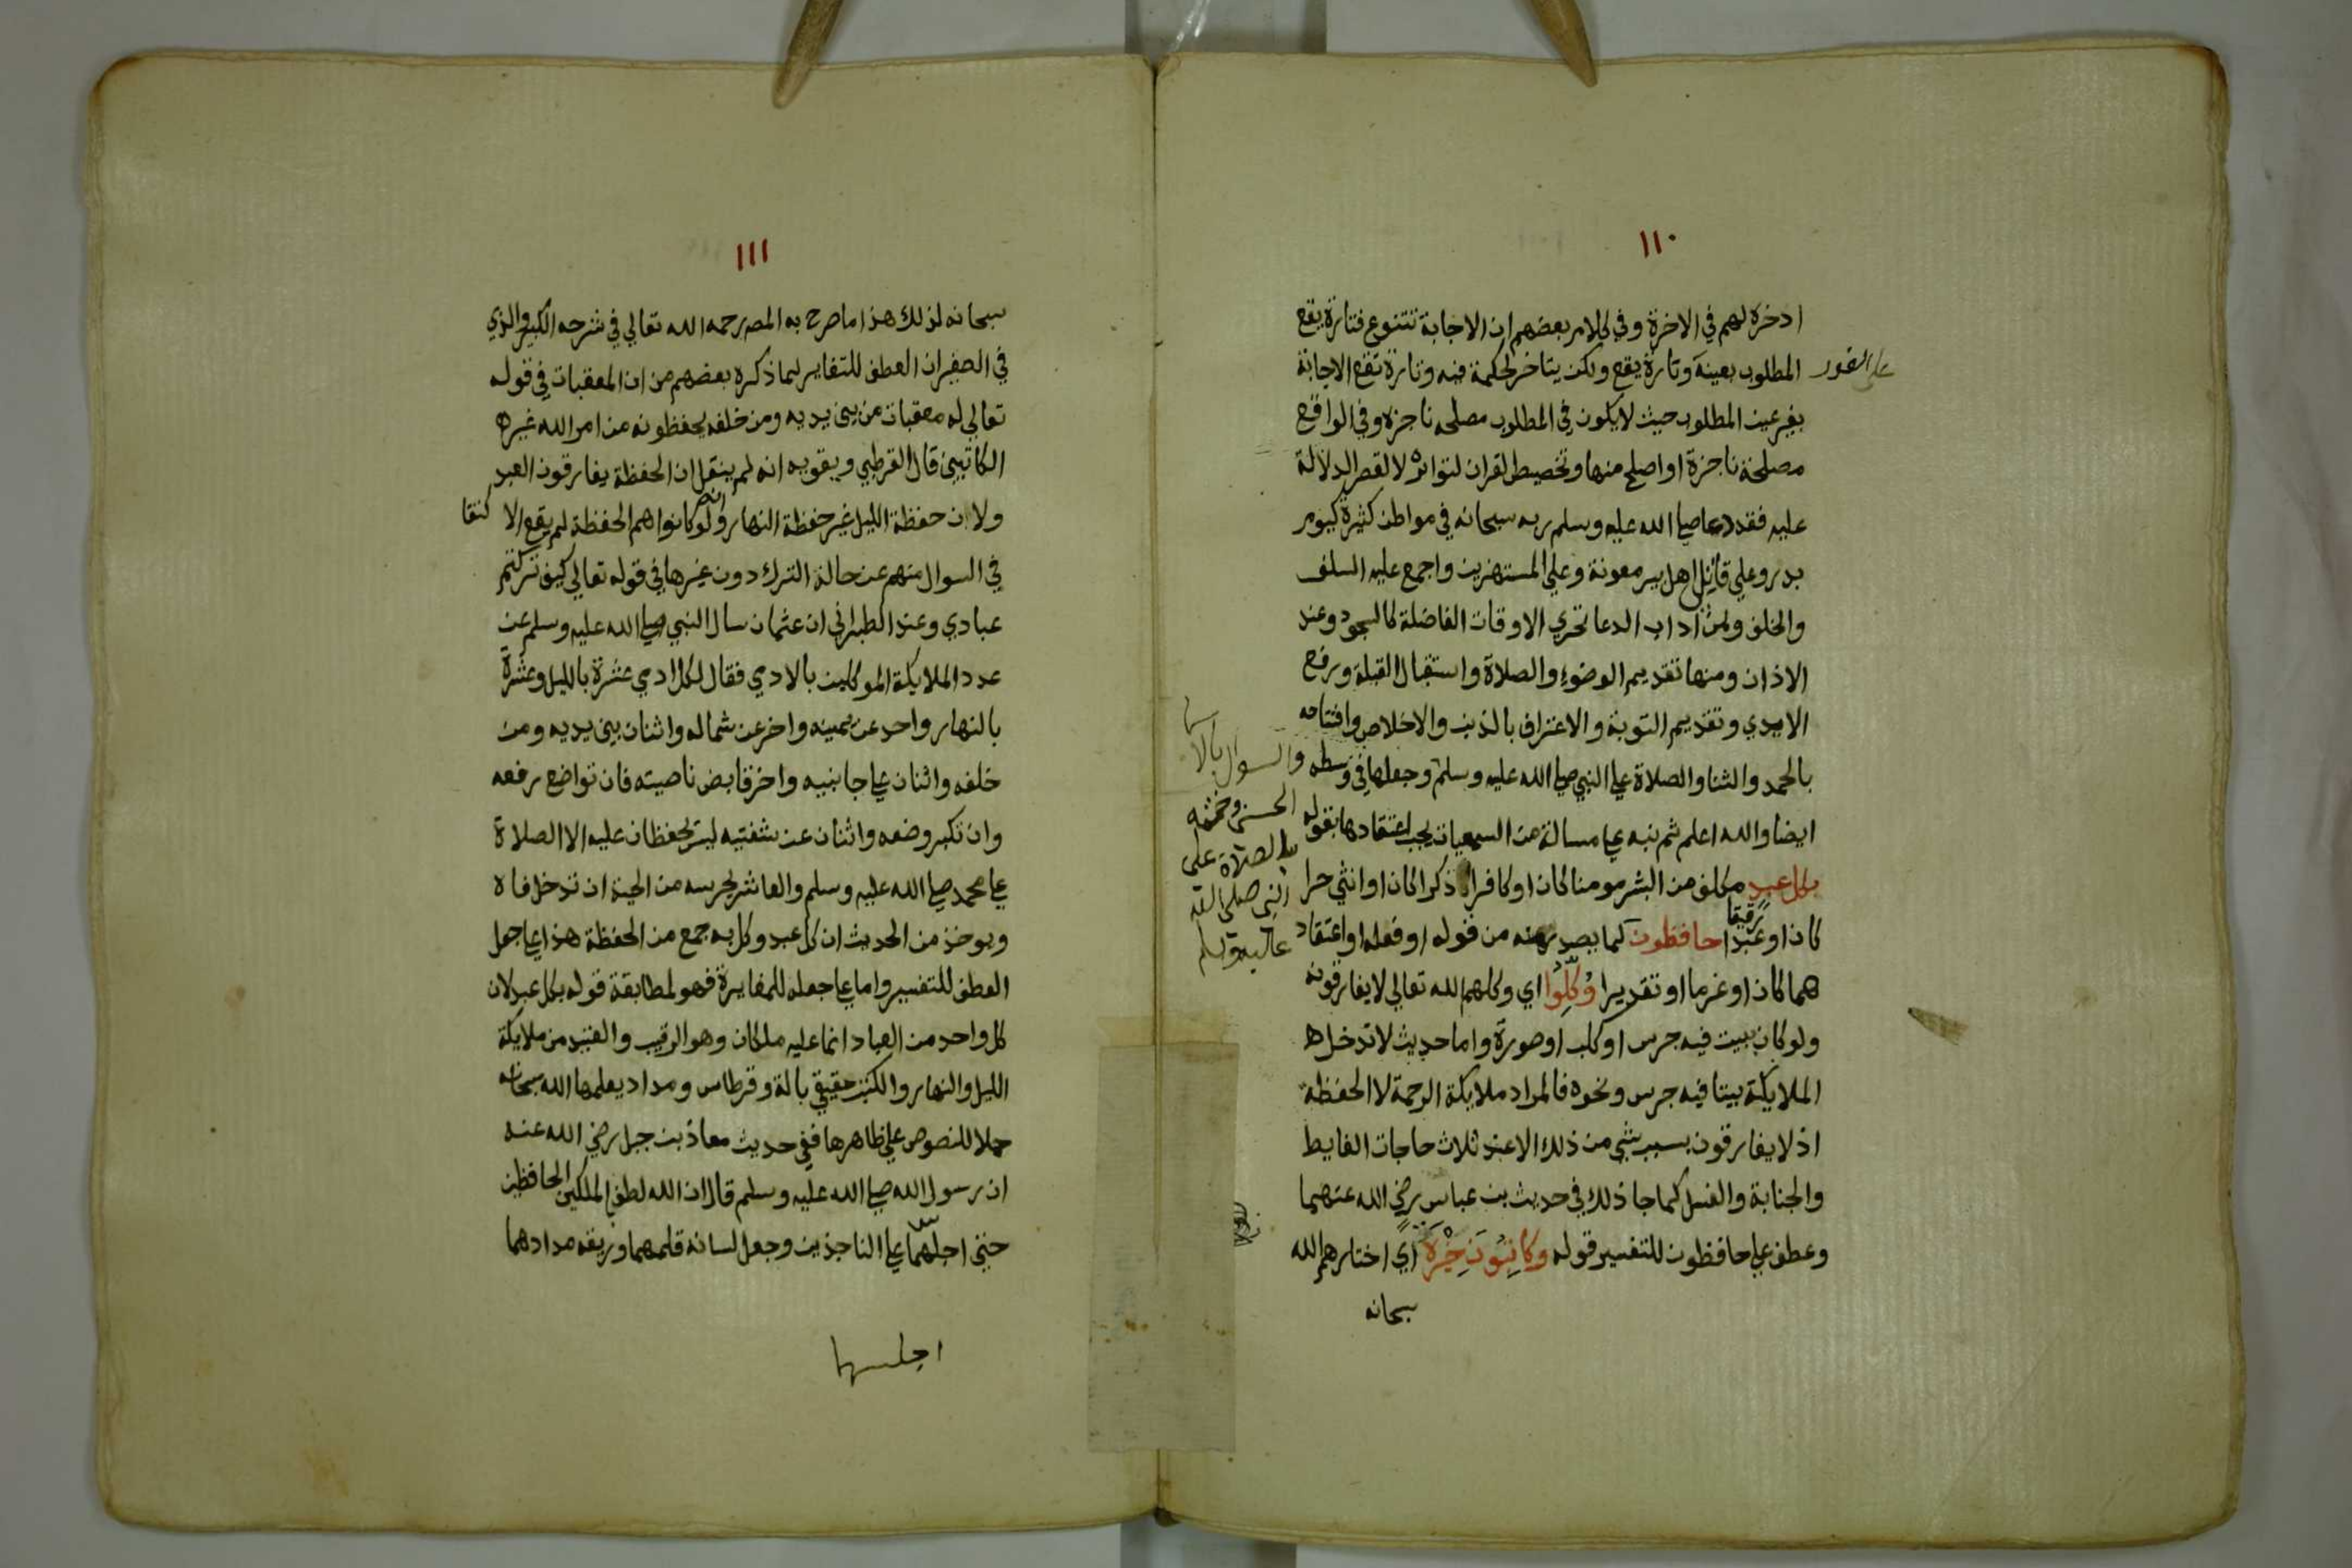 ١١٠
ادخره لهم في الاخرة وفي كلام بعضهم ان الاجابة تتنوع فتارة يقع
المطلوب بعينه وتارة يقع ولكن يتاخر لحكمة فيه وتارة تقع الاجابة
على الفور
بغير عين المطلوب حيث لا يكون في المطلوب مصلحه ناجزه وفي الواقع
مصلحة ناجزة او اصلح منها وتخصيص القران لتواتره لا لقصر الدلالة
عليه فقد دعا صلى الله عليه وسلم ربه سبحانه في مواطن كثيرة كيوم
بدر وعلى قاتل اهل بير معونة وعلى المستهزين واجمع عليه السلف
والخلف ومن اداب الدعا تحري الاوقات الفاضلة كالسجود وعند
الاذان ومنها تقديم الوضوء والصلاة واستقبال القبلة ورفع
الايدي وتقديم التوبة والاعتراف بالذنب والاخلاص وافتتاحه
بالحمد والثنا والصلاة على النبي صلى الله عليه وسلم وجعلها في وسطه
والسوال بالاسما
الحسنى وختمه
بالصلاة على
النبي صلى الله
عليه وسلم
ايضا والله اعلم ثم نبه على مسالة من السمعيات يجب اعتقادها بقوله
بكل عبد مكلف من البشر مومنا كان او كافرا ذكرا كان او انثى حرا
كان او عبدا رقيقا حافظون لما يصدر منه من قوله او فعله او اعتقاد
هما كان او عزما او تقديرا وُكِّلوا اي وكلهم الله تعالى لا يفارقونه
ولو كان بيت فيه جرس او كلب او صورة واما حديث لا تدخل
الملايكة بيتا فيه جرس ونحوه فالمراد ملايكة الرحمة لا الحفظة
اذ لا يفارقون بسبب شي من ذلك الا عند ثلاث حاجات الغايط
والجنابة والغسل كما جا ذلك في حديث بن عباس رضي الله عنهما
وعطف على حافظون للتفسير قوله وكاتبون خيرة اي اختارهم الله
سبحانه
١١١
سبحانه لذلك هذا ما صرح به المصر رحمه الله تعالى في شرحه الكبير والذي
في الصغير ان العطف للتغاير لما ذكره بعضهم من ان المعقبات في قوله
تعالى له معقبات من بين يديه ومن خلفه يحفظونه من امر الله غير
الكاتبين قال القرطبي ويقويه انه لم ينقل ان الحفظة يفارقون العبد
ولا ان حفظة الليل غير حفظة النهار وانه لو كانوا هم الحفظة لم يقع الا كتفا
في السوال منهم عن حالة الترك دون غيرها في قوله تعالى كيف تركتم
عبادي وعند الطبراني ان عثمان سال النبي صلى الله عليه وسلم عن
عدد الملايكة الموكلين بالادمي فقال لكل ادمي عشرة بالليل وعشرة
بالنهار واحد عن يمينه واخر عن شماله واثنان بين يديه ومن
خلفه واثنان على جانبيه واخر قابض ناصيته فان تواضع رفعه
وان تكبر وضعه واثنان عن شفتيه ليس يحفظان عليه الا الصلاة
على محمد صلى الله عليه وسلم والعاشر يحرسه من الحية ان تدخل فاه
ويوخذ من الحديث ان كل عبد وكل به جمع من الحفظة هذا على جعل
العطف للتفسير واما على جعله للمغايرة فهو لمطابقة قوله بكل عبد لان
كل واحد من العباد انما عليه ملكان وهو الرقيب والعتيد من ملايكة
الليل والنهار والكتب حقيقي بالة وقرطاس ومداد يعلمها الله سبحانه
حملا للنصوص على ظاهرها ففي حديث معاذ بن جبل رضي الله عنه
ان رسول الله صلى الله عليه وسلم قال ان الله لطف الملكين الحافظين
حتى اجلسهما على الناجذين وجعل لسانه قلمهما وريقه مدادهما
اجلسهما